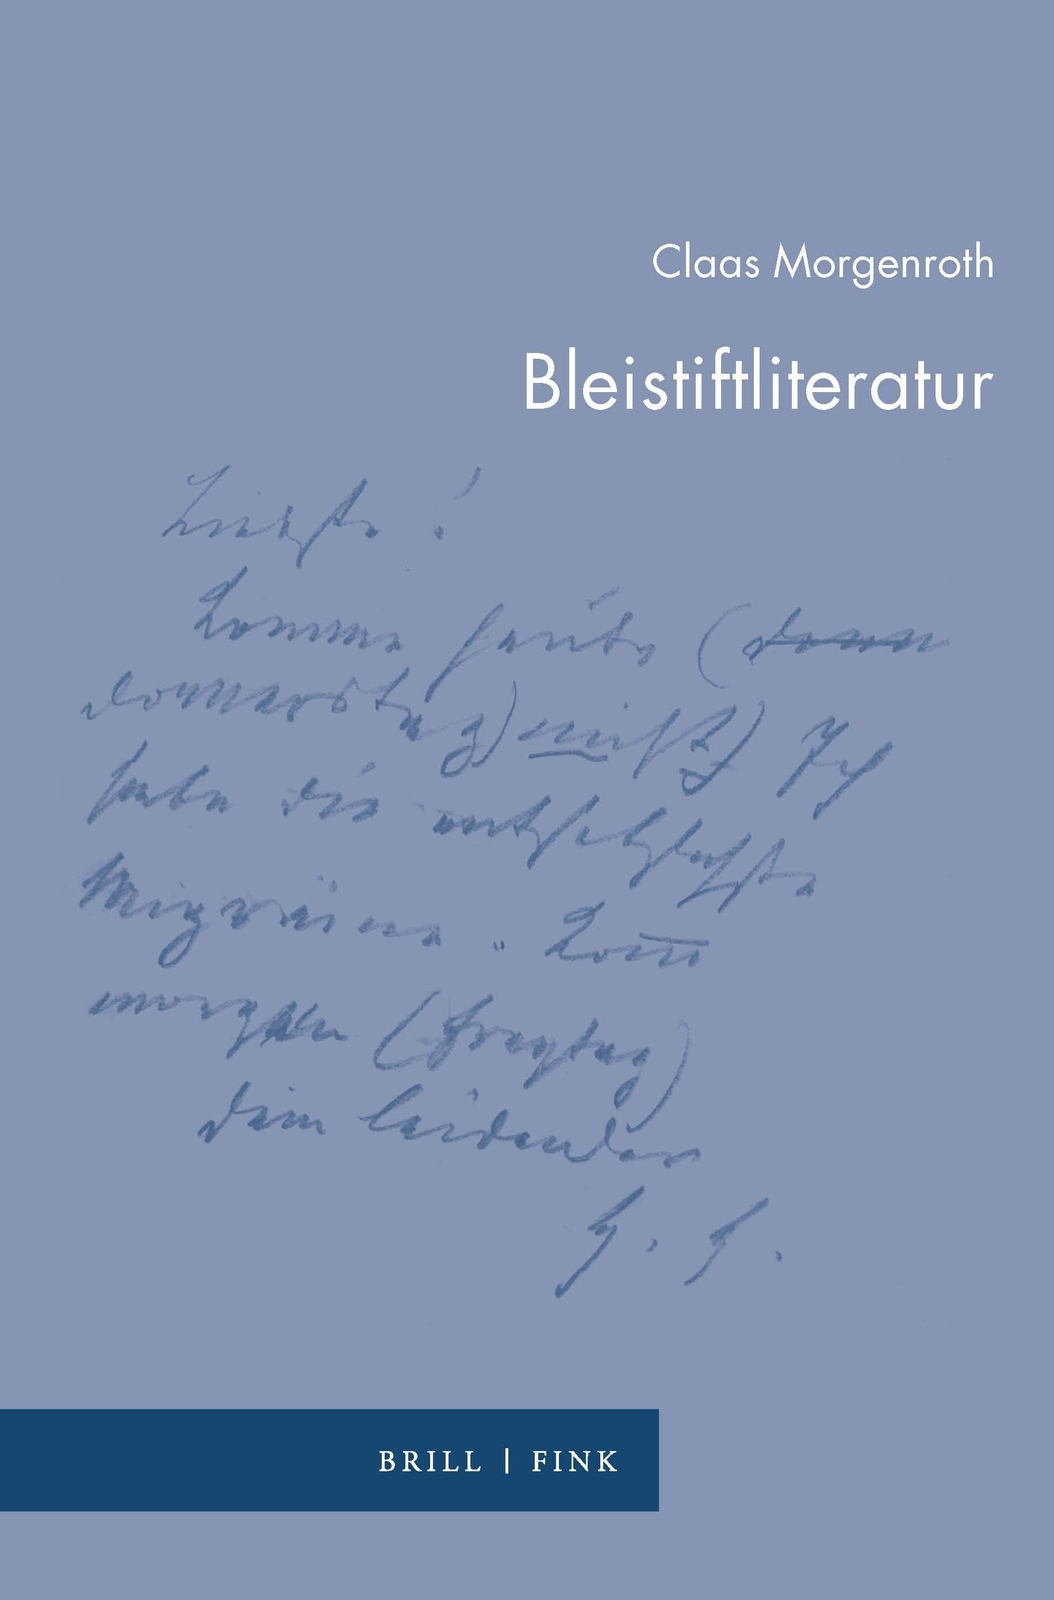 Claas Morgenroth
Bleistiftliteratur
Liebste!
Komme heute (donn
donnerstag) nicht) Ich
habe die entsetzlichste
Migräne. Kom̅
morgen (freytag)
dein leidender
BRILL | FINK